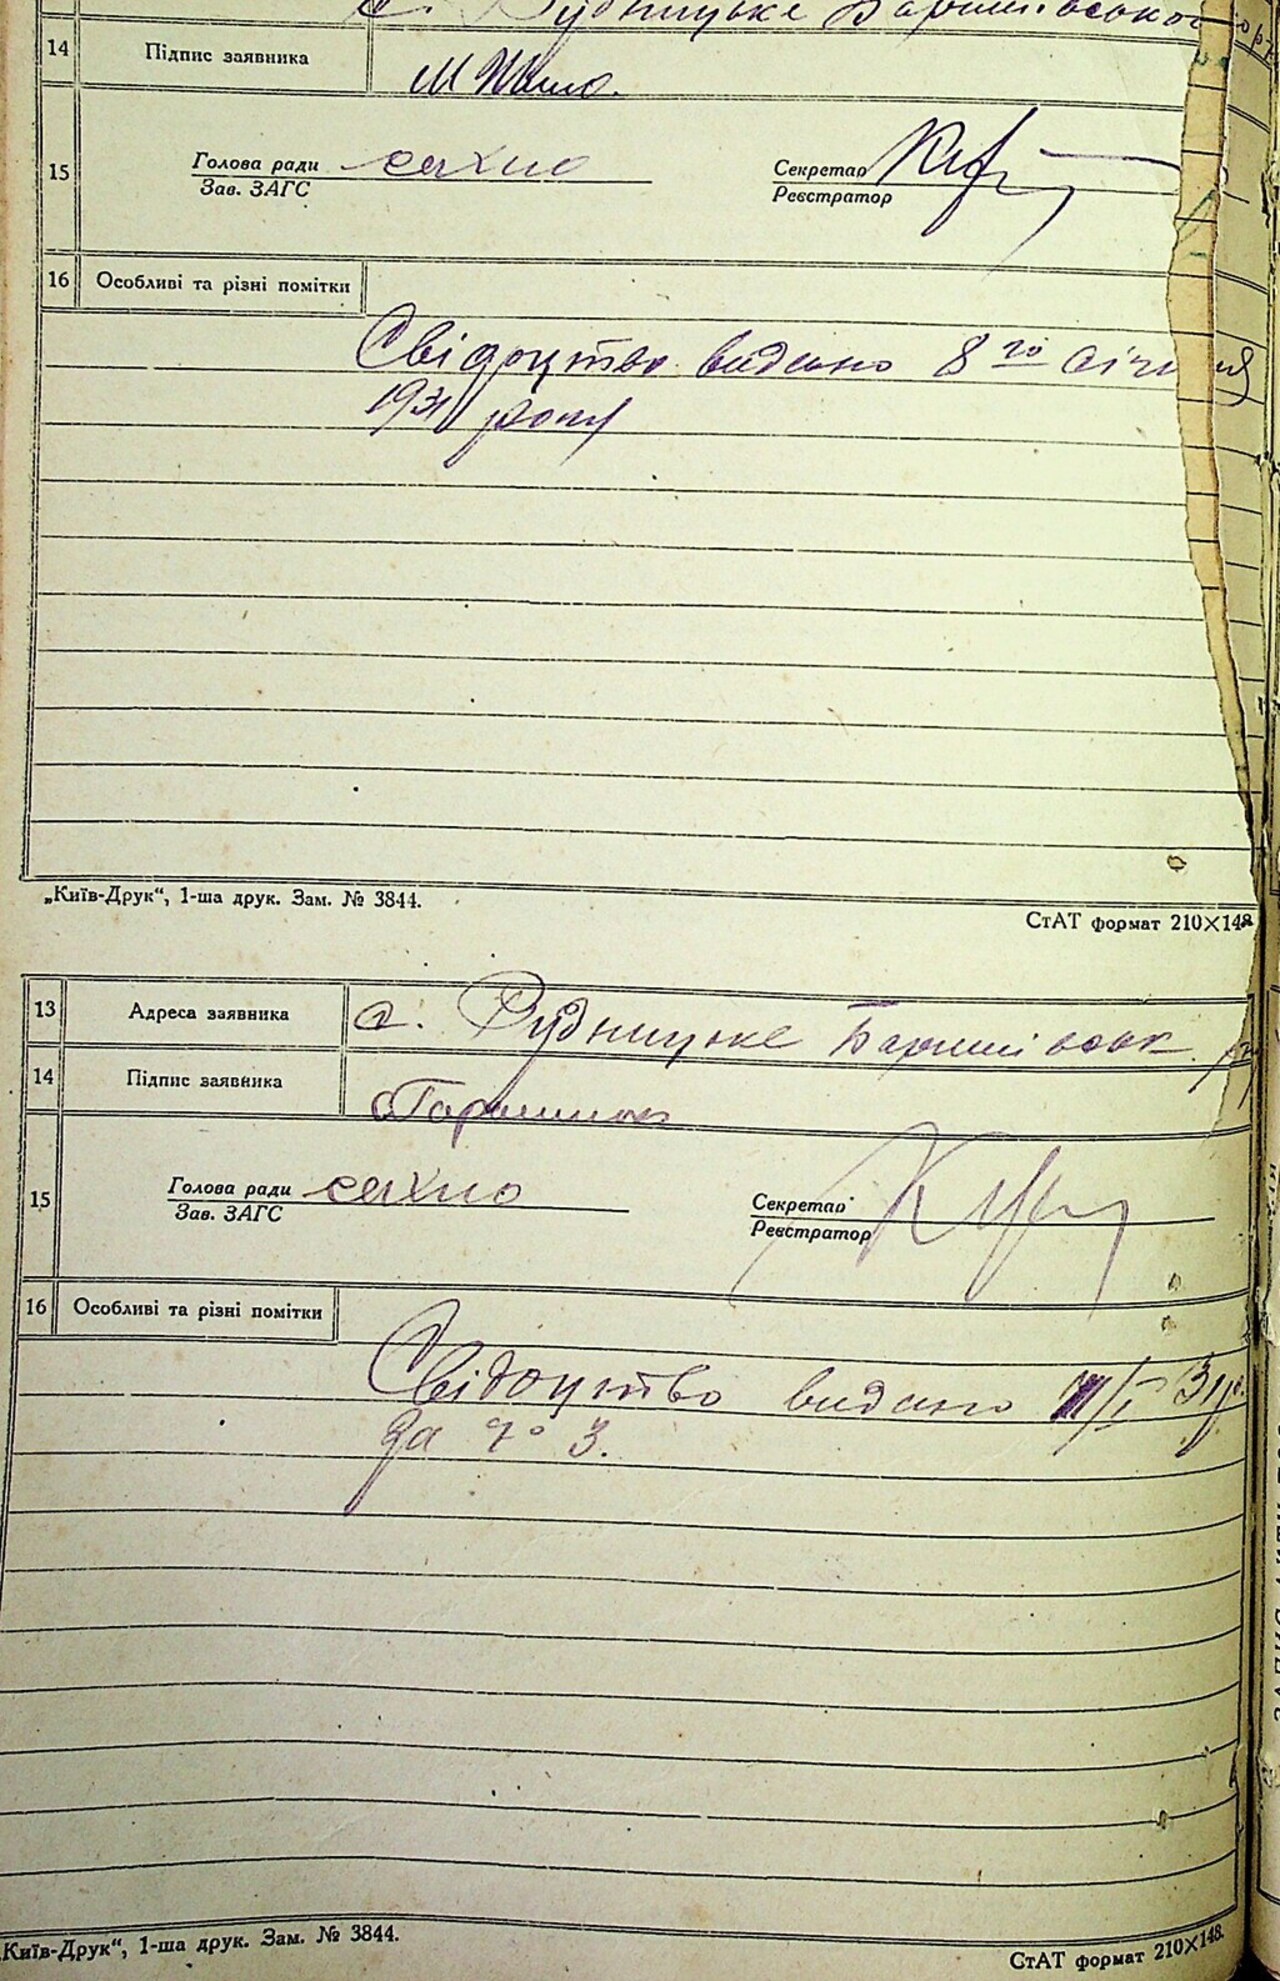 с. Рудницьке Баришівського
14 Підпис заявника
15 Голова ради сахно Секретар
Зав. ЗАГС Реєстратор
16 Особливі та різні помітки
Свідоцтво видано 8 го січня
1931 року
„Київ-Друк“, 1-ша друк. Зам. № 3844.
СтАТ формат 210×148
13 Адреса заявника с. Рудницьке Баришівськ.
14 Підпис заявника
15 Голова ради сахно Секретар
Зав. ЗАГС Реєстратор
16 Особливі та різні помітки
Свідоцтво видано 31р.
За № 3.
„Київ-Друк“, 1-ша друк. Зам. № 3844.
СтАТ формат 210×148.